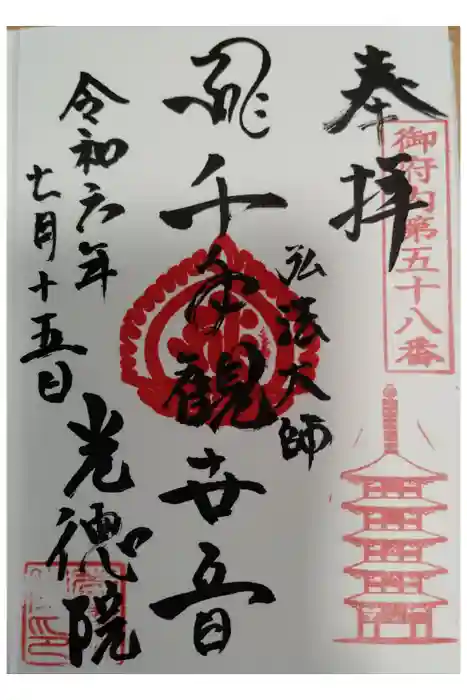 奉拝
御府内第五十八番
弘法大師
千手観世音
令和六年
七月十五日
光徳院